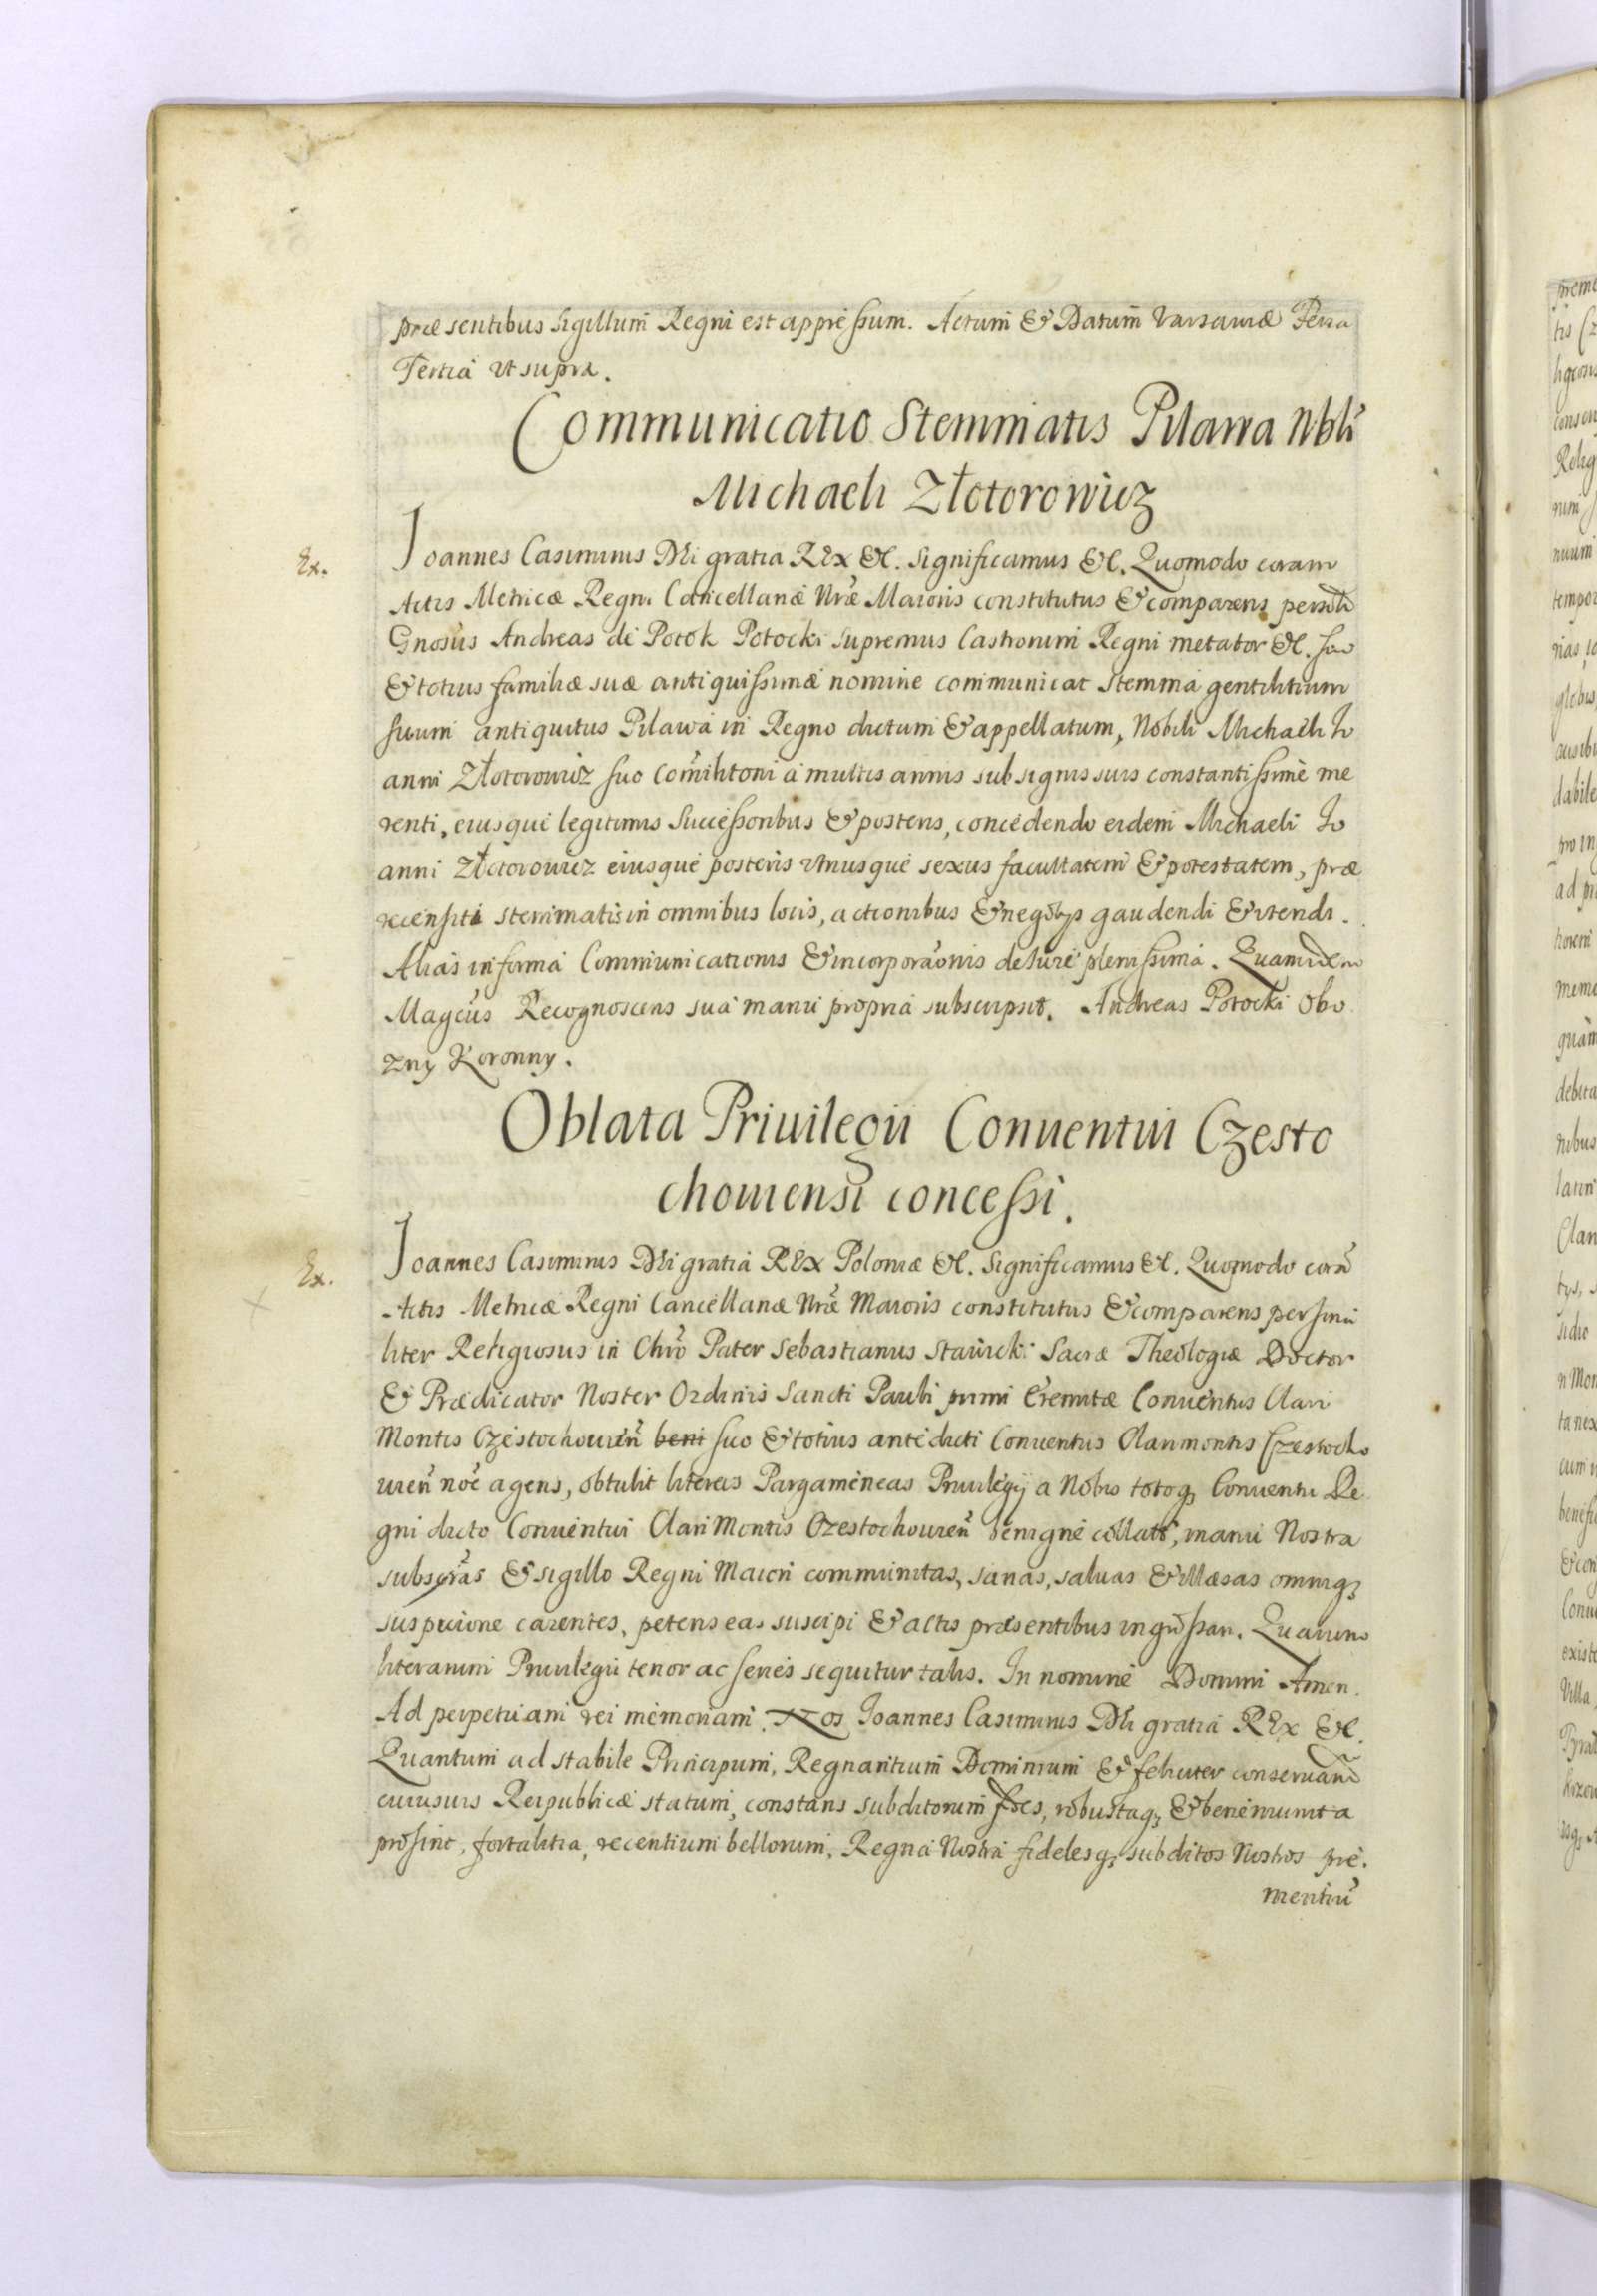 præsentibus Sigillum Regni est appressum. Actum & Datum Varsaviæ Feria
Tertia vt supra.
Communicatio Stemmatis Pilawa Nbli
Michaeli Złotorowicz
Ex.
Ioannes Casimirus Dei gratia REx &c. Significamus &c. Quomodo coram
Actis Metricæ Regni Cancellariæ Nræ Maioris constitutus & comparens personlr
Gnosus Andreas de Potok Potocki Supremus Castrorum Regni metator &c. suo
& totius familiæ suæ antiquissimæ nomine communicat Stemma gentilitium
suum antiquitus Pilawa in Regno dictum & appellatum, Nobili Michaeli Io
anni Złotorowicz suo Comilitoni a multis annis sub signis suis constantissimè me
renti, eiusque legitimis Successoribus & posteris, concedendo eidem Michaeli Io
anni Złotorowicz eiusque posteris vtriusque sexus facultatem & potestatem, præ
recensiti stemmatis in omnibus locis, actionibus & negotys gaudendi & vtendi.
Alias in forma Communicationis & incorporaonis de Iure plenissima. Quam idem
Magcus Recognoscens sua manu propria subscripsit. Andreas Potocki Obo
zny Koronny.
Oblata Priuilegii Conuentui Czesto
chouiensi concessi.
Ex.
Ioannes Casimirus Dei gratia REx Poloniæ &c. Significamus &c. Quomodo corã
Actis Metricæ Regni Cancellariæ Nræ Maioris constitutus & comparens persona
liter Religiosus in Chro Pater Sebastianus Stawicki Sacræ Theologiæ Doctor
& Prædicator Noster Ordinis Sancti Pauli primi Eremitæ Conuentus Clari
Montis Czestochouien beni suo & totius antedicti Conuentus Clarimontis Czestocho
uien noe agens, obtulit literas Pargameneas Priuilegij a Nobis totoq Conuentu Re
gni dicto Conuentui Clari Montis Czestochouien benigne collati, manu Nostra
subscras & sigillo Regni Maiori communitas, sanas, saluas & illæsas omniq
suspicione carentes, petens eas suscipi & actis præsentibus ingrossari. Quarum
literarum Priuilegii tenor ac series sequitur talis. In nomine Domini Amen.
Ad perpetuam rei memoriam. Nos Ioannes Casimirus Dei gratia REx &c.
Quantum ad stabile Principum, Regnantium Dominium & feliciter conseruand
cuiusuis Reipublicæ statum, constans subditorum fides, robustaq & bene munita
prosint, fortalitia, recentium bellorum, Regna Nostra fidelesq subditos Nostros pre.
mentiu